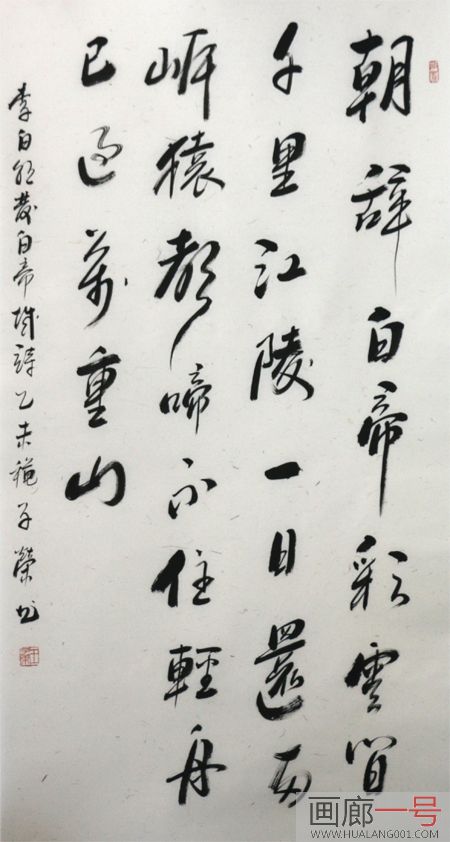 朝辞白帝彩雲間
千里江陵一日還兩
岸猿聲啼不住輕舟
已過萬重山
李白朝發白帝城詩乙未穐子榮书
画廊一号
WWW.HUALANG001.COM